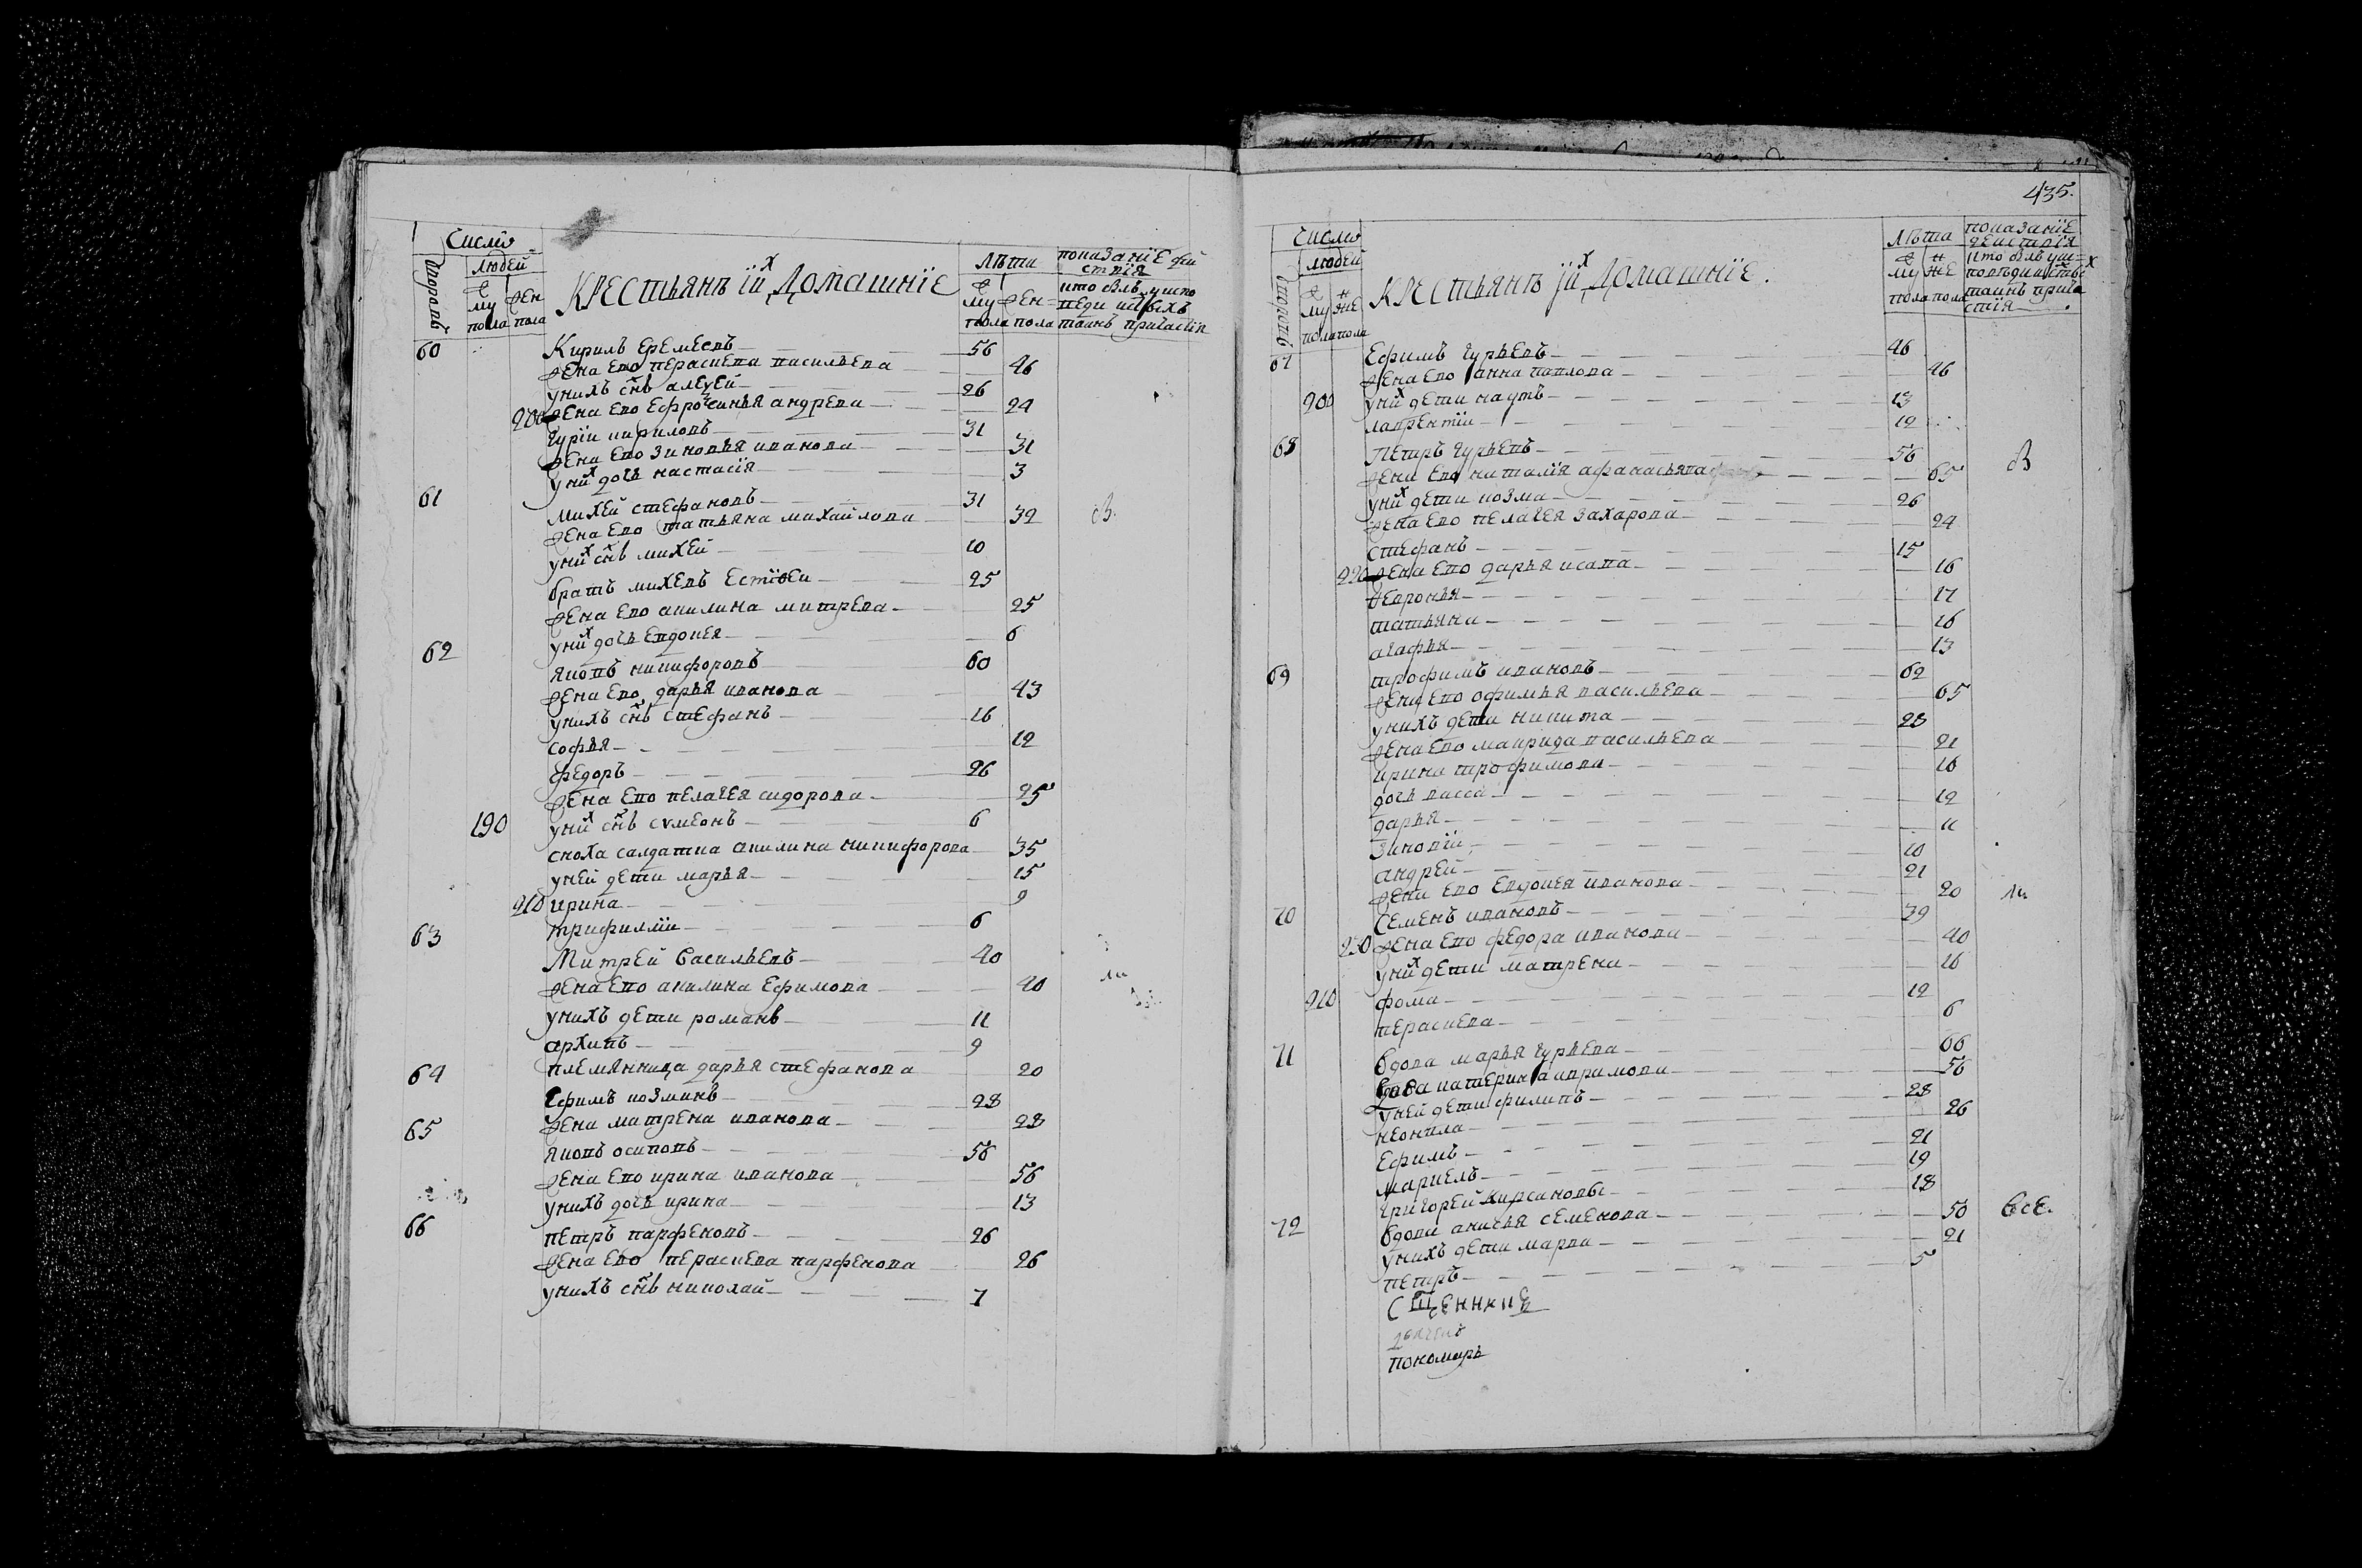 Число
Людей
дворовъ
му жен
пола пола
Крестьянъ їихъ Домашнїе
Лѣта
му жен
пола пола
показанїе дей
ствїя
кто былъ у испо
веди и свѧтыхъ
таинъ причастїя
60 Кирилъ Еремеевъ 56
жена ево Пераскева Васильева 46
у нихъ снъ Алеѯей 26
200 жена ево Ефросинья Андрева 24
Гурїи Кириловъ 31
жена ево Зиновья Иванова 31
у них дочь Настасїя 3
61 Михей Стефановъ 31
жена ево Татьяна Михайлова 32 в.
у них снъ Михей 10
братъ Михевъ Естїоеи 25
жена ево Акилина Митрева 25
у них дочь Евдокея 6
62 Яковъ Никифоровъ 60
жена ево Дарья Иванова 43
у нихъ снъ Стефанъ 16
Софья 12
Федоръ 26
жена ево Пелагея Сидорова 25
190 у них снъ Сѵмеонъ 6
сноха салдатка Акилина Никифорова 35
у ней дети Марья 15
210 Ирина 9
Трифиллїи 6
63 Митрей Васильевъ 40
жена ево Акилина Ефимова 40
у нихъ дети Романъ 11
Архипъ 9
племянница Дарья Стефанова 20
64 Ефимъ Козминъ 28
жена Матрена Иванова 28
65 Яковъ Осиповъ 56
жена ево Ирина Иванова 56
у нихъ дочь Ирина 13
66 Петръ Парфеновъ 26
жена ево Пераскева Парфенова 26
у нихъ снъ Николай 1
435.
Число
людей
дворовъ
му же
пола пола
Крестьянъ їихъ Домашнїе.
Лѣта
му же
пола пола
показанїе
действїя
кто былъ у и
таинъ прича
стїя
67 Ефимъ Гурьевъ 46
жена ево Анна Павлова 46
200 у них дети Наумъ 13
Лаврентїи 12
68 Петръ Гурьевъ 56
жена ево Наталїя Афанасьева 65 в
у них дети Козма 26
жена ево Пелагея Захарова 24
Стефанъ 15
220 жена ево Дарья Исава 16
Февронья 17
Татьяна 16
Агафья 13
69 Трофимъ Ивановъ 62
жена ево Офимья Васильева 65
у нихъ дети Никита 23
жена ево Маврида Васильева 21
Ирина Трофимова 16
дочь Васса 12
Дарья 11
Зиновїи 10
Андрей 21
жена ево Евдокея Иванова 20
70 Семенъ Ивановъ 39
230 жена ево Федора Иванова 40
у них дети Матрена 16
210 Фома 12
Пераскева 6
71 Вдова Марья Гурьева 66
Вдова Катерина Аврамова 56
у ней дети Филипъ 28
Неонила 26
Ефимъ 21
Маркелъ 19
Григорей Кирсановы 18
72 Вдова Анисья Семенова 50 Все.
у нихъ дети Марва 21
Петръ 5
пономарь